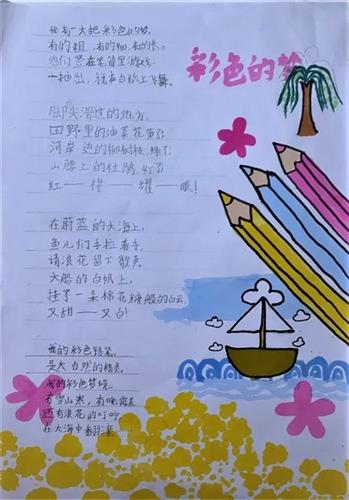 彩色的梦
我有一大把彩色的梦,
有的粗,有的细,
他们
一 白纸上飞舞。
脚尖滑过的地方,
田野里的油菜花黄了;
河岸边的柳树枝绿了;
山腰上的杜鹃红了,
红——得——耀——眼!
在蔚蓝的大海上,
鱼儿们手拉着手,
请浪花留下歌声。
大船的白帆上,
挂了一朵棉花糖般的白云,
又甜——又白!
我的彩色铅笔,
是大自然的精灵。
我的彩色梦境,
有雪山寒,有晚霞
还有浪花的叮咛
在大海中翻滚……